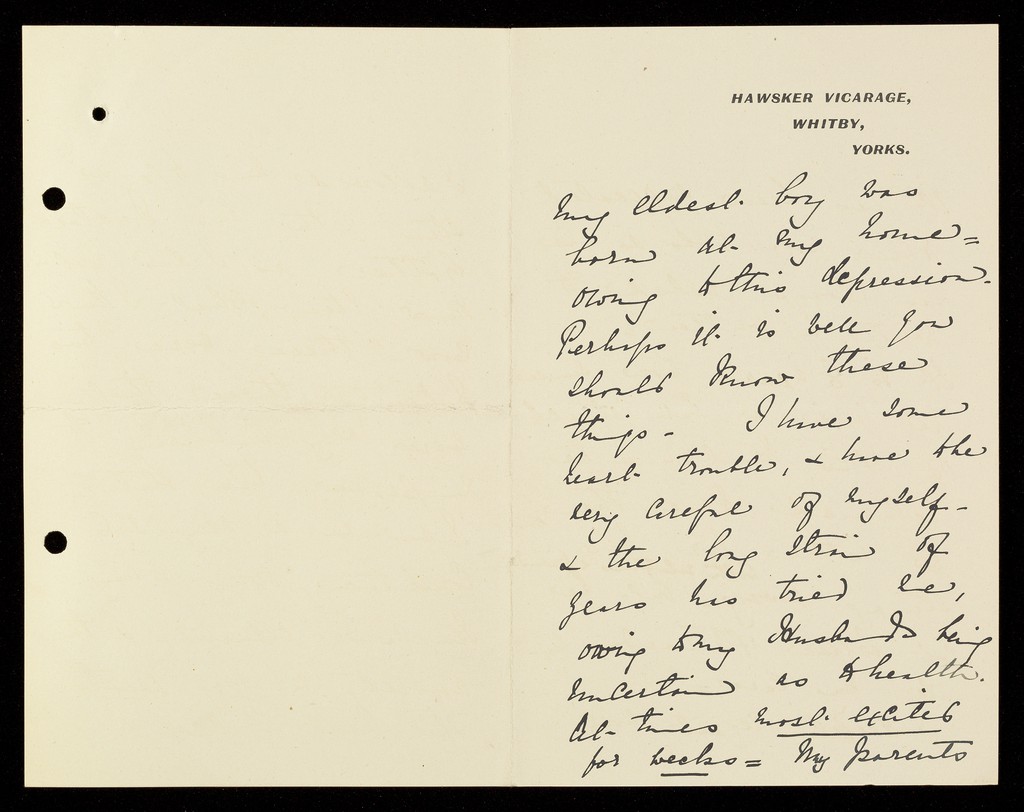 HAWSKER VICARAGE,
WHITBY,
YORKS.
My eldest boy was
born at my home =
owing to this depression.
Perhaps it is well you
should know these
things - I have some
heart trouble, & have to be
very careful of myself -
& the long strain of
years has tried me,
owing to my Husbands being
uncertain as to health.
At times most excited
for weeks = My parents